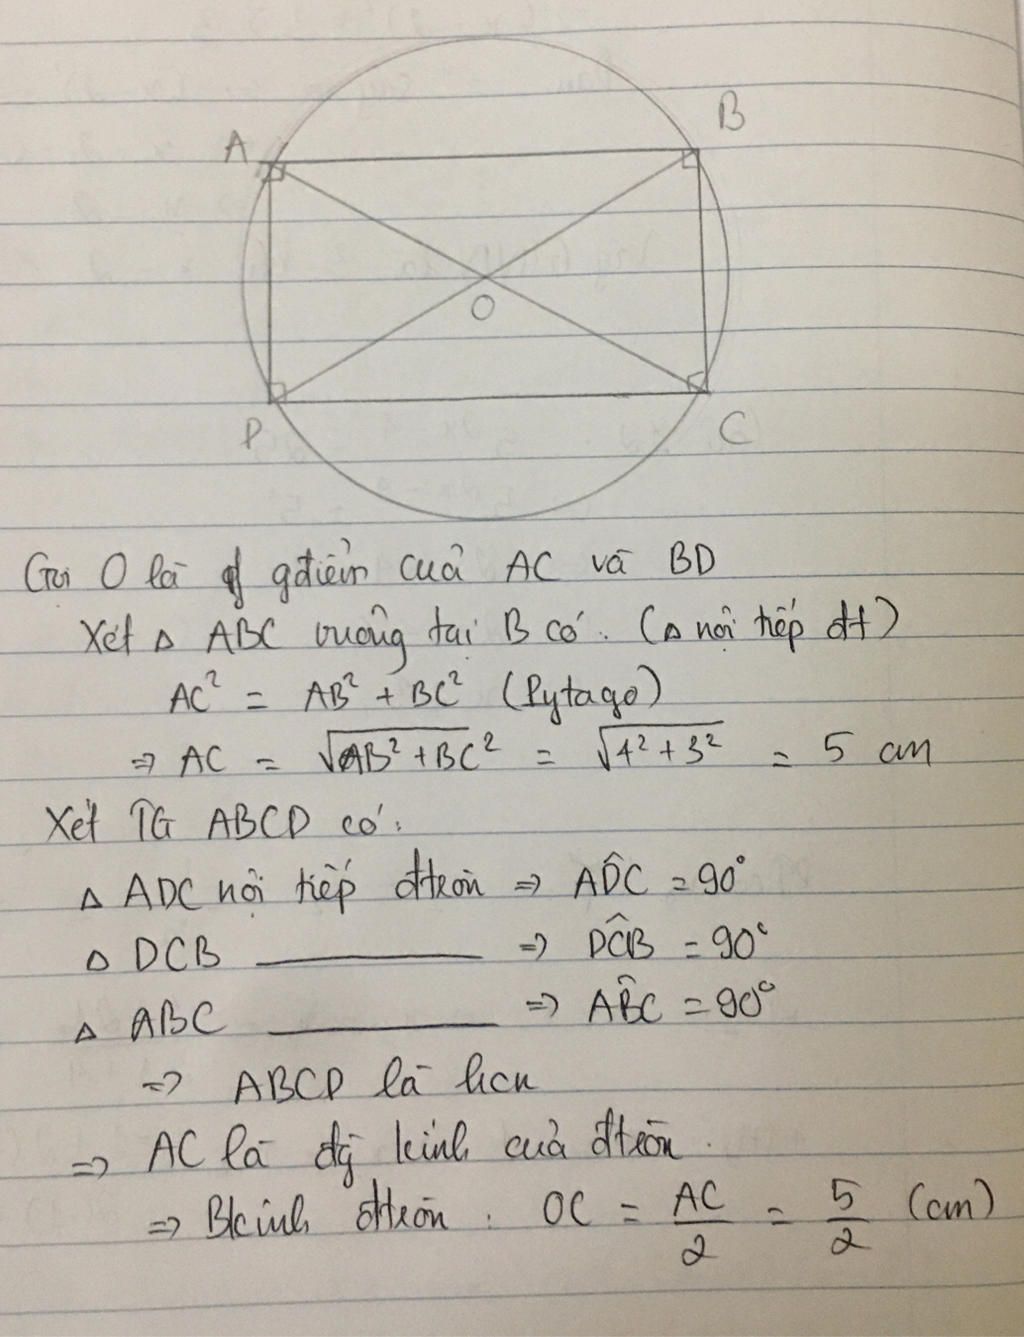 A
B
O
D
C
Gọi O là gđiểm cuả AC và BD
Xét △ ABC vuông tại B có: (△ nội tiếp đt)
AC² = AB² + BC² (Pytago)
⇒ AC = √AB² + BC² = √4² + 3² = 5 cm
Xét TG ABCD có:
△ ADC nội tiếp đtròn ⇒ ADC = 90°
△ DCB ———— ⇒ DCB = 90°
△ ABC ———— ⇒ ABC = 90°
⇒ ABCD là hcn
⇒ AC là đg kính cuả đtròn.
⇒ Bkính đtròn : OC = AC/2 = 5/2 (cm)